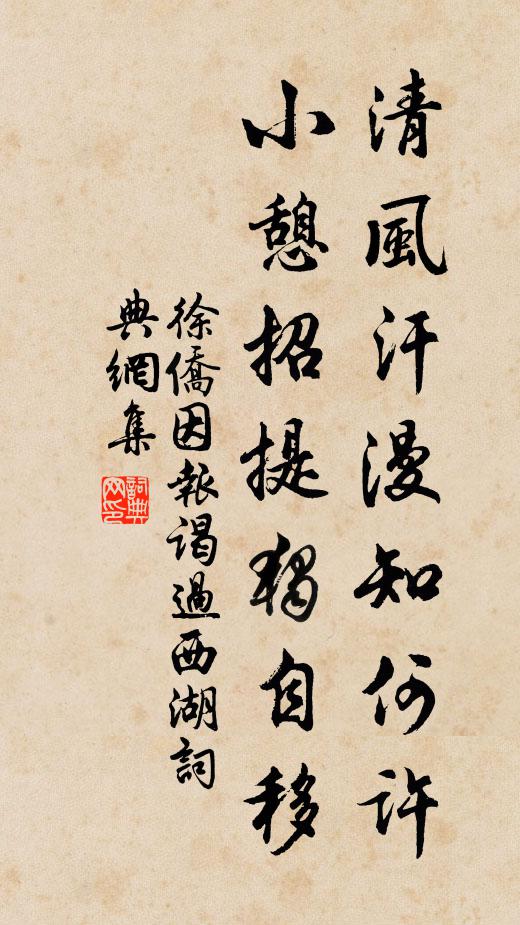 清風汗漫知何許
小憩招提獨自移
徐僑因報謁過西湖詞
典網集
詞典網印